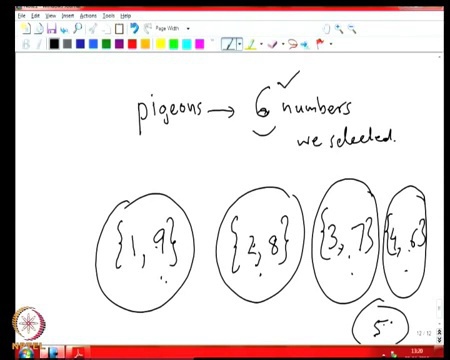 File Edit View Insert Actions Tools Help
Page Width
B I
pigeons → 6 numbers
we selected.
{1, 9} {2, 8} {3, 7} {4, 6}
5
12 / 12
13:20